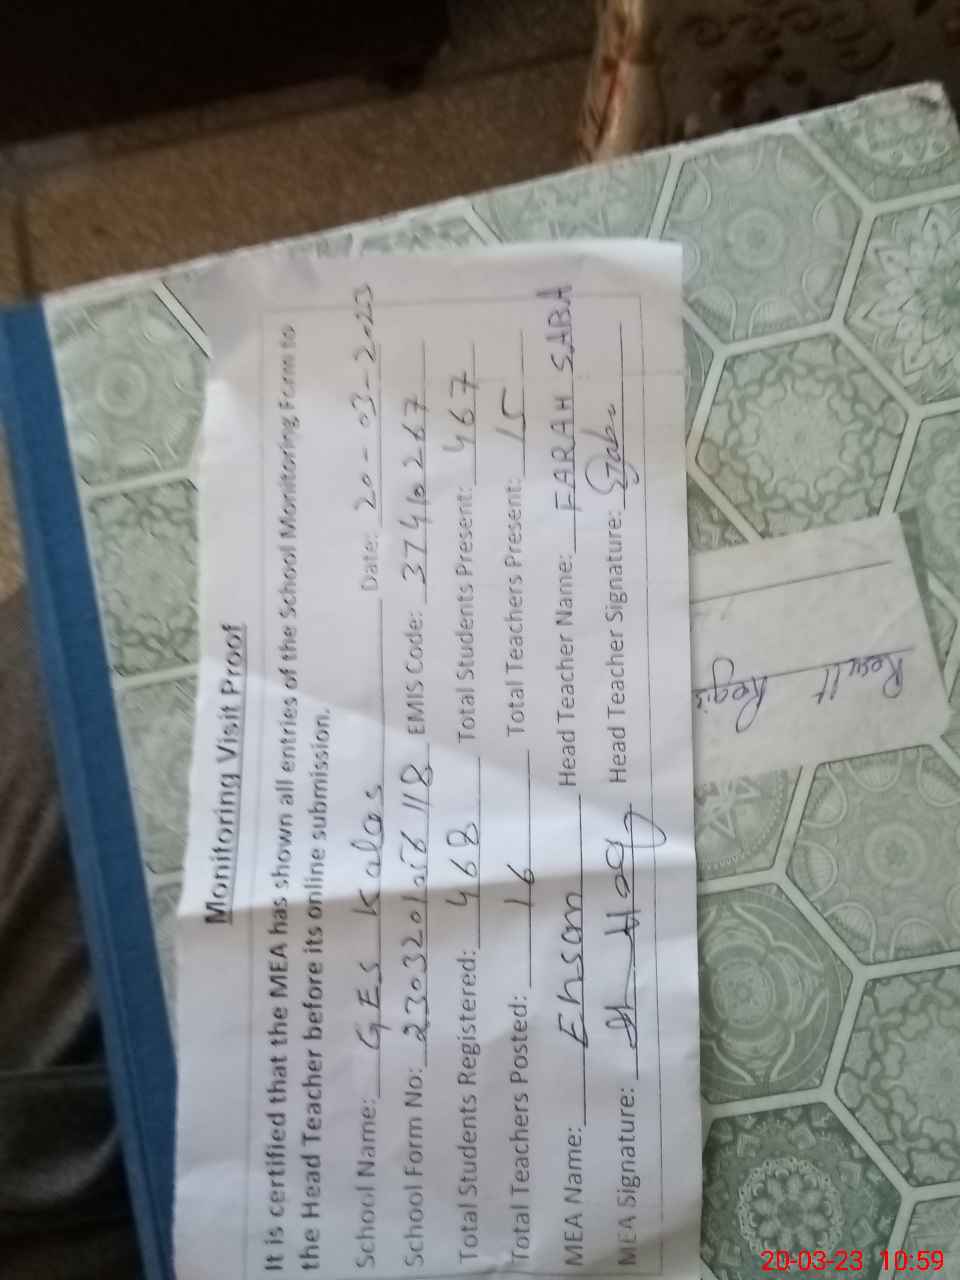 Monitoring Visit Proof
It is certified that the MEA has shown all entries of the School Monitoring Form to
the Head Teacher before its online submission.
School Name: GES Kalas Date: 20-03-2023
School Form No: EMIS Code: 37410267
Total Students Registered: 468 Total Students Present: 467
Total Teachers Posted: 16 Total Teachers Present: 15
MEA Name: Head Teacher Name: FARAH SABA
MEA Signature: Head Teacher Signature: Saba
Result Regis
20-03-23 10:59